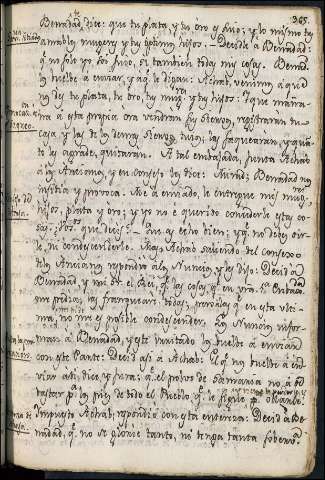 365
Benadad, dice: que tu plata, y tu oro es suyo; y lo mismo tus
amables mugeres, y tus optimos hijos. Decidle a Benadad:
que no solo yo soy suyo, si tambien todas mis cosas. Benadad
buelbe a enviar, y a que le digan: Achab, venimos a que
nos des tu plata, tu oro, tus mugeres, y tus hijos: y que mañana
a esta propia ora vendran sus siervos, registraran tu
casa, y las de los demas siervos tuyos; las saquearan, y quanto
les agrade, quitaran. A tal embajada, junta Achab
a los Ancianos, y en consejo les dice: Mirad; Benadad nos
insidia y provoca. Me a enviado, le entregue mis mugeres,
hijos, plata y oro; y yo no e querido concederle estas cosas;
que decis? Que as echo bien; y que no debes oirle,
ni condescenderle. Achab saliendo del consejo
de los Ancianos respondio a los Nuncios, y les dijo: Decid a
Benadad, mi Sr. el Rei, que las cosas que en vra. 1a. Embaxada
me pedias, las franqueare todas; pero las que en esta ultima,
no me es posible condescender. Los Nuncios informan
a Benadad, y este irritado los buelbe a enviar
con este Parte: Decid asi a Achab: El que nos buelbe a enviar
aqui, dice, y jura: que el polvo de Samaria no a de
bastar para los pies de todo el Pueblo que le sigue
Impuesto Achab, respondio con esta entereza: Decid a Benadad,
que no se glorie tanto, ni tenga tanta soberbia